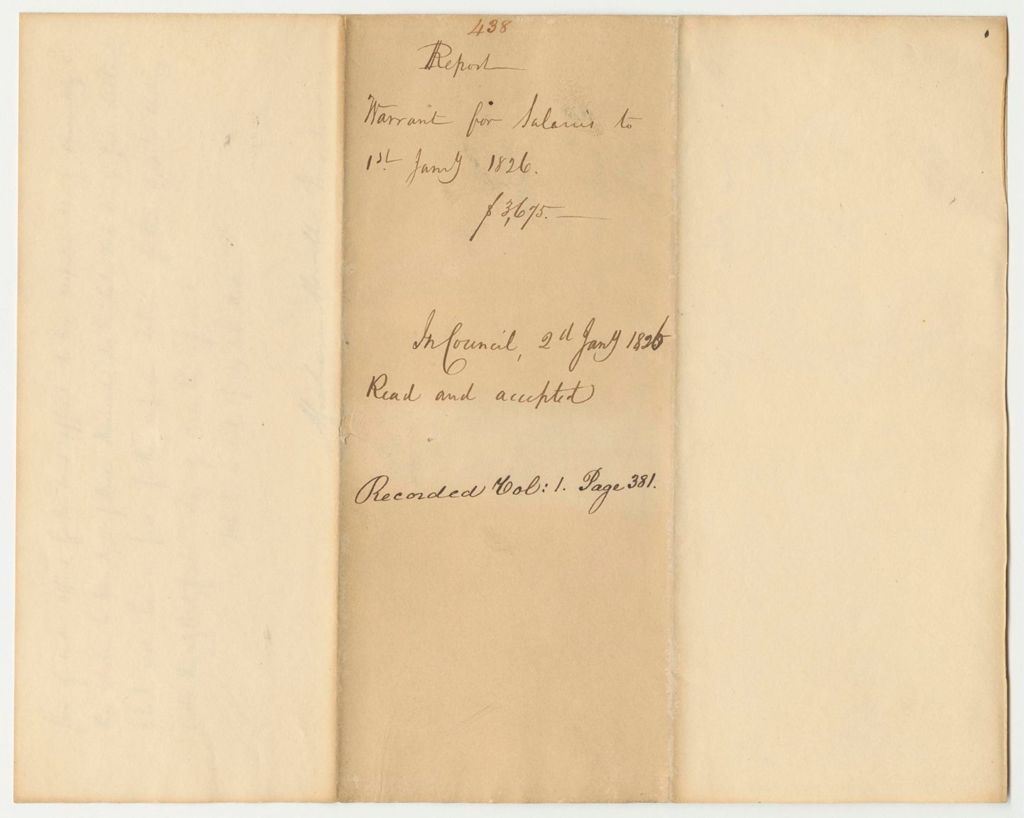 438
Report
Warrant for Salaries to
1st Jany 1826.
$3,675.—
In Council, 2d Jany 1826
Read and accepted
Recorded Vol: 1. Page 381.